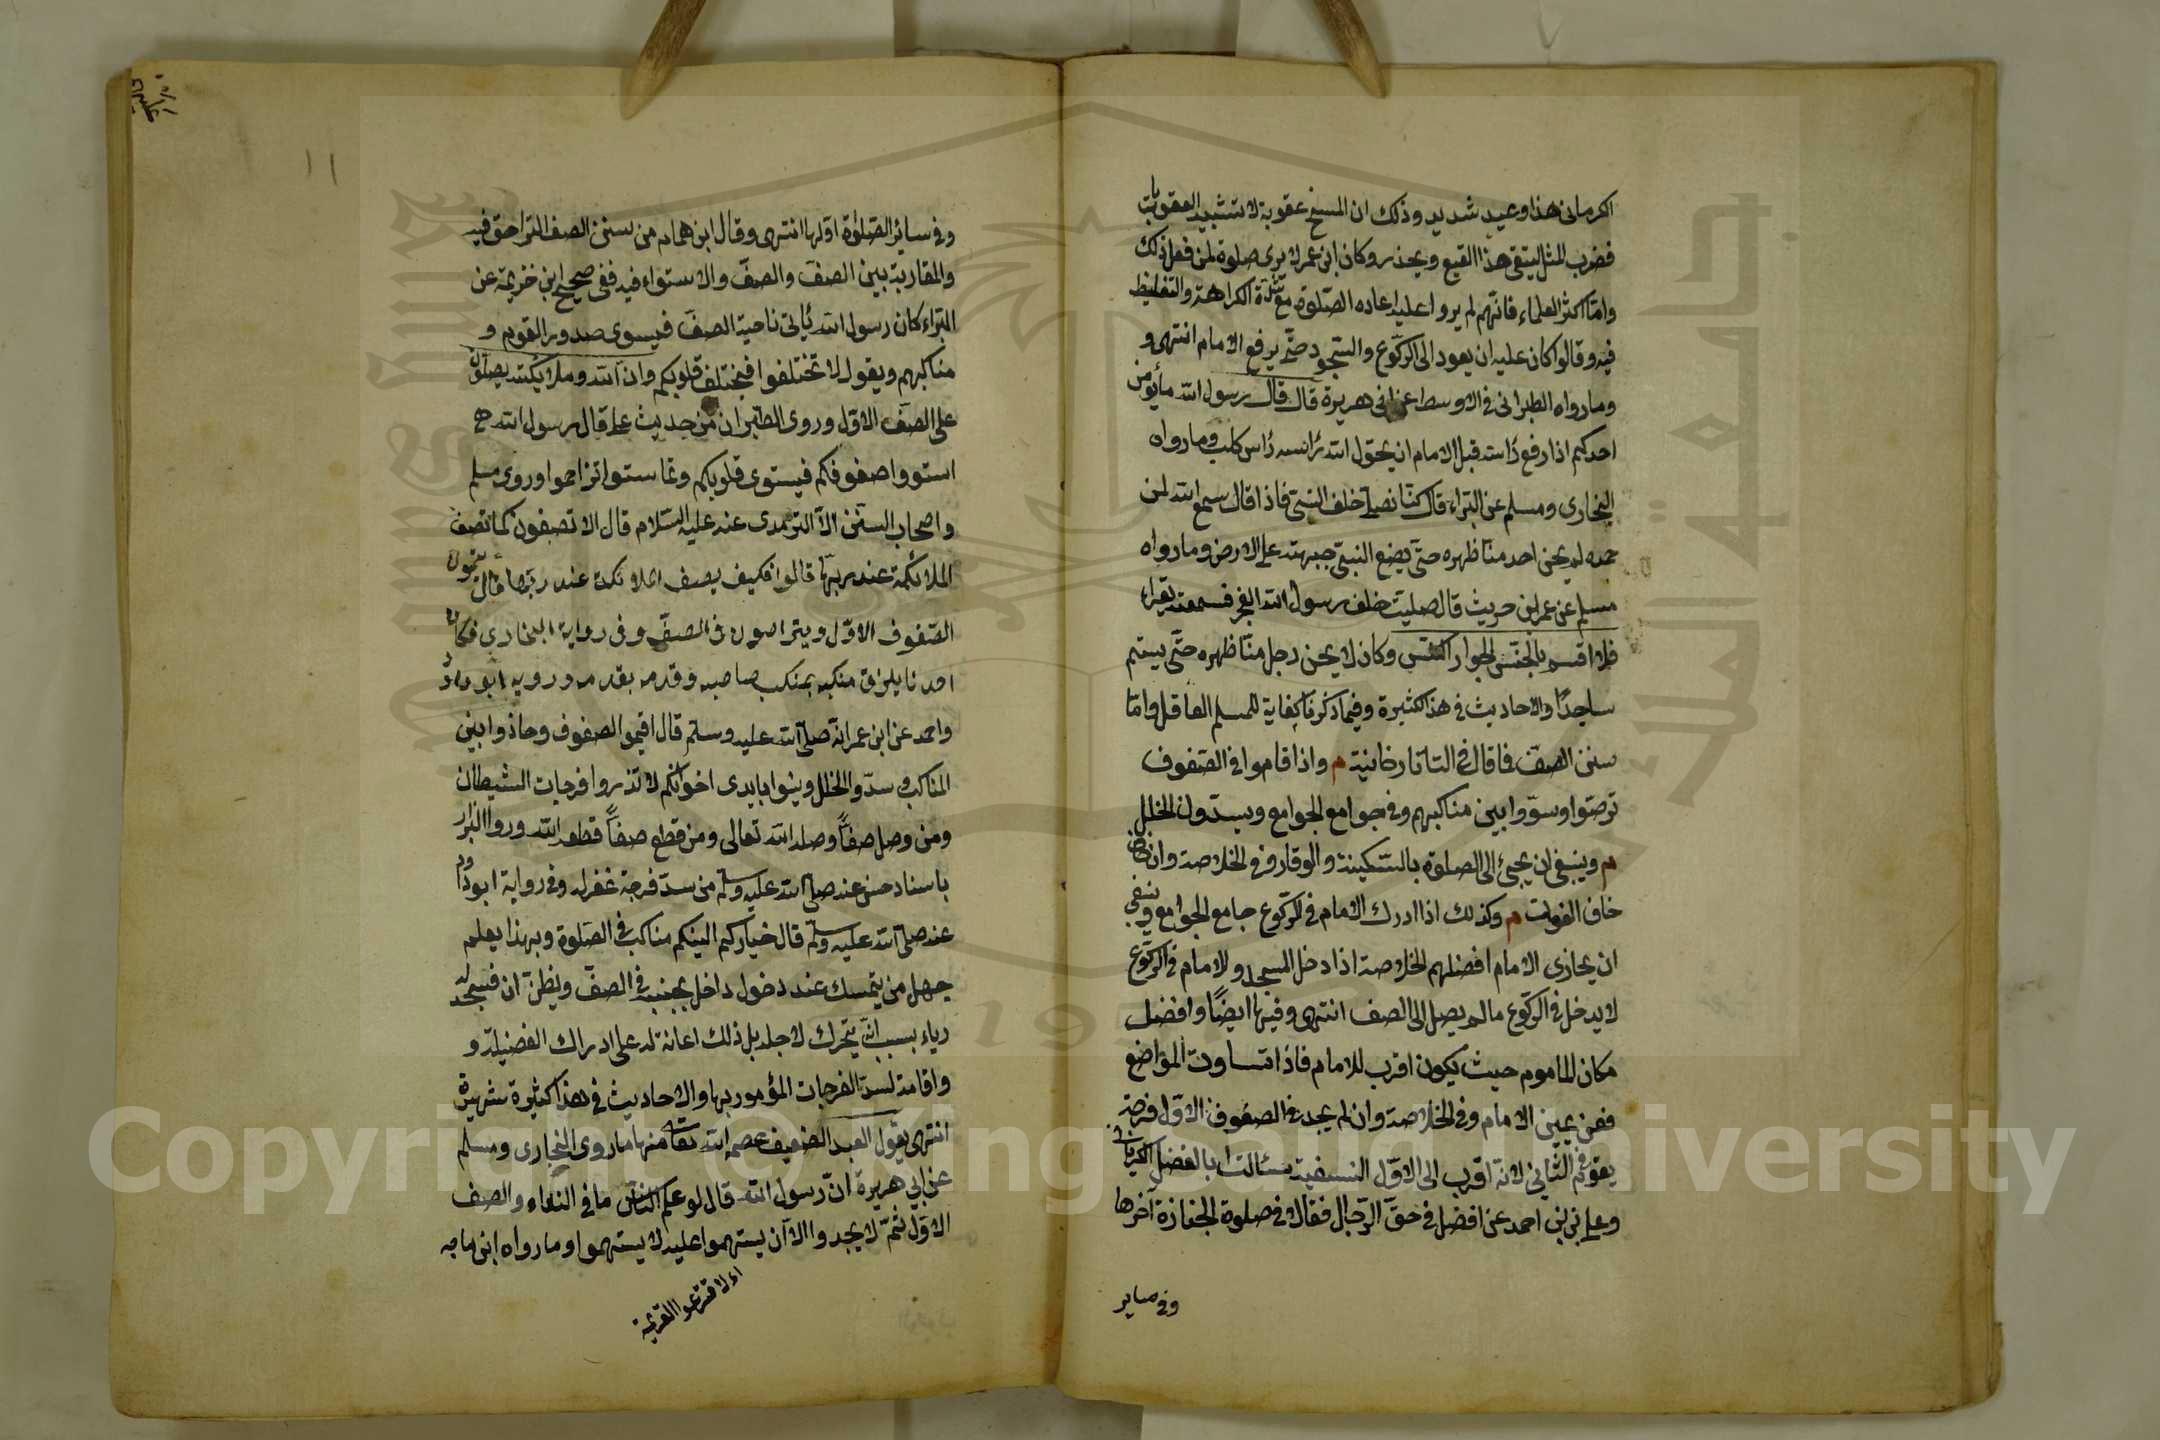 الكرماني هذا وعيد شديد وذلك ان المسخ عقوبة لا تشبيه العقوبات
فضرب المثل ليتقى هذا القبع ويحذر وكان ابن عمر لا يرى صلوة لمن فعل ذلك
وامّا اكثر العلماء فانّهم لم يروا عليه اعاده الصّلوة مع شدّة الكراهة والتغليظ
فيه وقالوا كان عليه ان يعود الى الركوع والسّجود حتّى يرفع الامام انتهى و
وما رواه الطبرانى فى الاوسط عن ابى هريرة قال قال رسول الله ما يؤمن
احدكم اذا رفع رأسه قبل الامام ان يحوّل الله رأسه رأس كلب وما رواه
البخارى ومسلم عن البراء قال كنّا نصلّى خلف النبى فاذا قال سمع الله لمن
حمده لم يحن احد منّا ظهره حتّى يضع النبىّ جبهته على الارض وما رواه
مسلم عن عمر ابن حريث قال صليت خلف رسول الله الفجر فسمعته يقراء
فلا اقسم بالخنّس الجوار الكنّس وكان لا يحن رجل منّا ظهره حتّى يستتم
ساجدًا والاحاديث فى هذا كثيرة وفيما ذكرنا كفاية للمسلم العاقل وامّا
سنن الصفّ فما قال فى التاتارخانية م واذا قاموا فى الصفوف
ترصّوا وسوّوا بين مناكبهم وفى جوامع الجوامع ويسدّون الخلل
م وينبغى ان يجئ الى الصلوة بالسّكينة والوقار وفى الخلاصة وان كان
خاف الفوات م وكذلك اذا ادرك الامام فى الركوع جامع الجوامع وينبغى
ان يحاذى الامام افضلهم الخلاصة اذا دخل المسجد والامام فى الركوع
لا يدخل فى الركوع ما لم يصل الى الصف انتهى وفيها ايضًا وافضل
مكان الماموم حيث يكون اقرب للامام فاذا تساوت المواضع
فعن يمين الامام وفى الخلاصة وان لم يجد فى الصفوف الاوّل فرجة
يقوم فى الثانى لانّه اقرب الى الاوّل النسفية سئالت ابا الفضل الكرمانى
وعلى بن احمد عن افضل فى حقّ الرّجال فقال فى صلوة الجنازة آخرها
وفى ساير
١١
وفى سائر الصّلوة اوّلها انتهى وقال ابن همام من سنن الصف التراحق فيه
والمقاربة بين الصفّ والصفّ والاستواء فيه ففى صحيح ابن خزيمة عن
البراء كان رسول الله يأتى ناحية الصفّ فيسوى صدور القوم و
مناكبهم ويقول لا تختلفوا فيختلف قلوبكم وان الله وملائكته يصلّون
على الصفّ الاوّل وروى الطبران من حديث على قال رسول الله صع
استووا صفوفكم فيستوى قلوبكم وتماستوا تزاحموا وروى مسلم
واصحاب السنن الّا الترمدى عنه عليه السّلام قال الا تصفون كما تصف
الملائكة عند ربّها قالوا فكيف يصف الملائكة عند ربّها قال يتمّون
الصّفوف الاوّل ويتراصون فى الصفّ وفى رواية البخارى فكان
احدنا يلزق منكبه بمنكب صاحبه وقدمه بقدمه ورويه ابو داؤد
واحمد عن ابن عمر انّه صلّى الله عليه وسلّم قال اقيموا الصفوف وحاذوا بين
المناكب وسدّوا الخلل ولينوا بايدى اخوانكم لا تذروا فرجات الشيطان
ومن وصل صفًّا وصله الله تعالى ومن قطع صفاًّ قطعه الله وروا البزار
باسناد حسن عنه صلّى الله عليه وسلّم من سدّ فرجة غفر له وفى رواية ابو داؤد
عنه صلّى الله عليه وسلّم قال خياركم الينكم مناكب فى الصّلوة وبهذا يعلم
جهل من يتمسك عند دخول داخل بجنبه فى الصفّ ويظنّ ان فسحه له
رياء بسبب انّه يتحرك لاجله بل ذلك اعانة له على ادراك الفضيلة و
واقامة لسدّ الفرجات المؤمور بها والاحاديث فى هذا كثيرة شهيرة
انتهى يقول العبد الضعيف عصمه الله تعالى منها ما روى البخارى ومسلم
عن ابى هريرة انّ رسول الله قال لو علم الناس ما فى النداء والصف
الاوّل ثمّ لا يجدوا الّا ان يستهموا عليه لا يستهموا وما رواه ابن ماجه
اى لاقترعوا القرعة
جامعة الملك سعود
King Saud University
1957
Copyright © King Saud University